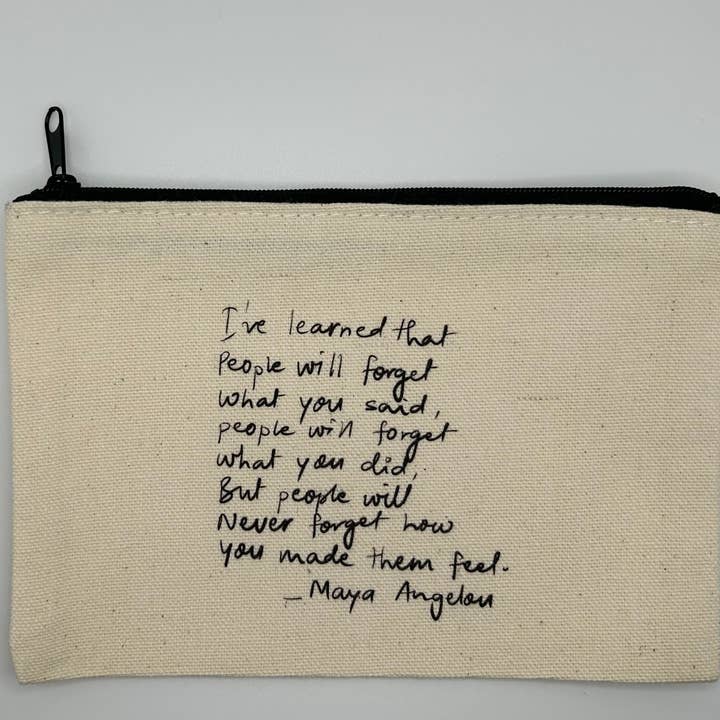 I've learned that
People will forget
what you said,
people will forget
what you did,
But people will
Never forget how
you made them feel.
_Maya Angelou